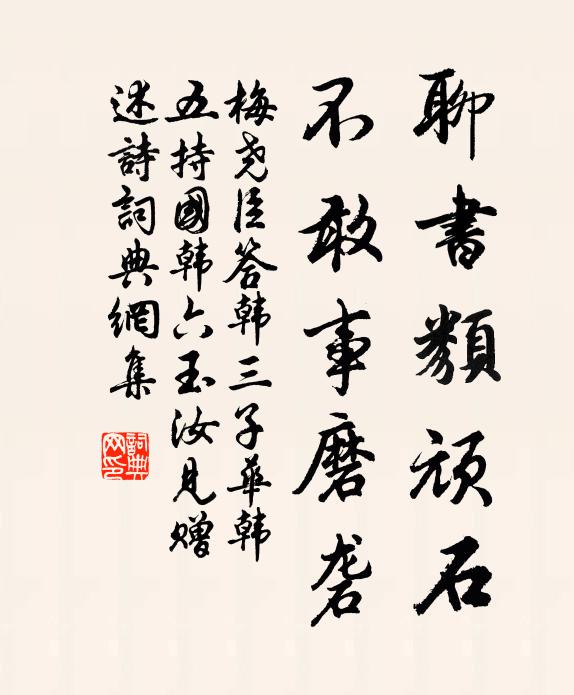 聊書類頑石
不敢事磨砻
梅尧臣答韩三子華韩
五持國韩六玉汝見赠
述詩詞典網集
詞典网印